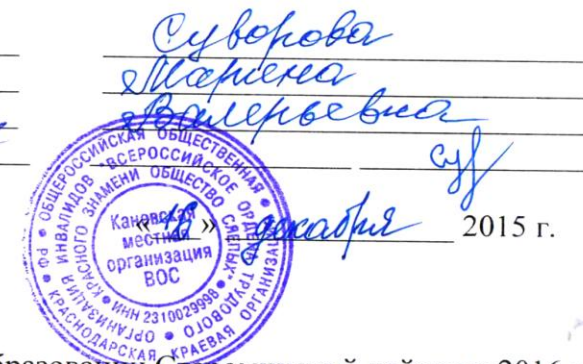 Суворова
Марина
Валерьевна
« 18 » декабря 2015 г.
РФ • ОБЩЕРОССИЙСКАЯ ОБЩЕСТВЕННАЯ
ОРГАНИЗАЦИЯ ИНВАЛИДОВ "ВСЕРОССИЙСКОЕ ОРДЕНА ТРУДОВОГО
КРАСНОГО ЗНАМЕНИ ОБЩЕСТВО СЛЕПЫХ"
КРАСНОДАРСКАЯ КРАЕВАЯ ОРГАНИЗАЦИЯ
ИНН 2310029998
Каневская
местная
организация
ВОС
2016